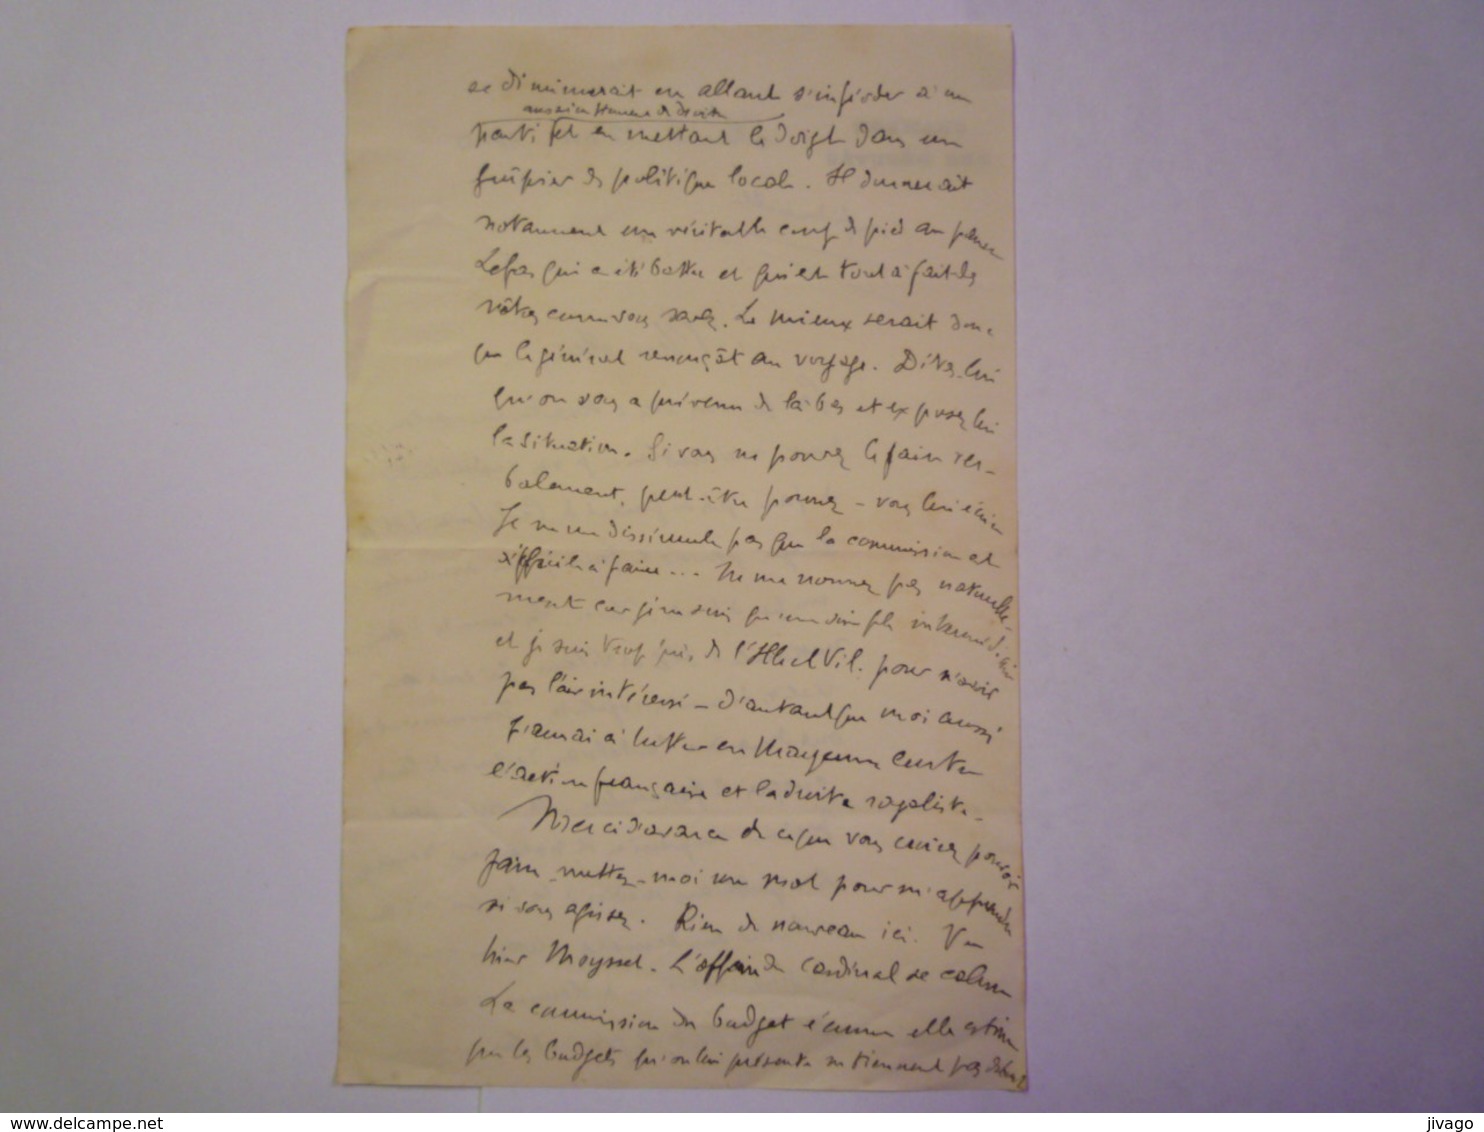 se diminuerait en allant s'inféoder à un
ancien homme de droite
parti et en mettant le doigt dans un
guêpier de politique locale. Il donnerait
notamment un véritable coup de pied au pauvre
Lefas qui a été battu et qui est tout à fait des
nôtres comme vous savez. Le mieux serait donc
que le général renonçât au voyage. Dites-lui
qu'on vous a prévenu de là-bas et exposez lui
la situation. Si vous ne pouvez le faire ver-
balement, peut-être pourrez-vous lui écrire
Je ne me dissimule pas que la commission est
difficile à faire... Ne me nommez pas naturelle-
ment car je ne suis qu'un simple intermédiaire
et je suis trop près de l'H. de Vil. pour n'avoir
pas l'air intéressé - d'autant que moi aussi
j'aurai à lutter en Mayenne contre
l'action française et la droite royaliste.
Merci d'avance de ce que vous croirez pouvoir
faire, mettez-moi un mot pour m'apprendre
si vous agissez. Rien de nouveau ici. Vu
hier Moysset. L'affaire du Cardinal se calme
La commission du budget écume elle estime
que les budgets qu'on lui présente ne tiennent pas debout
jivago